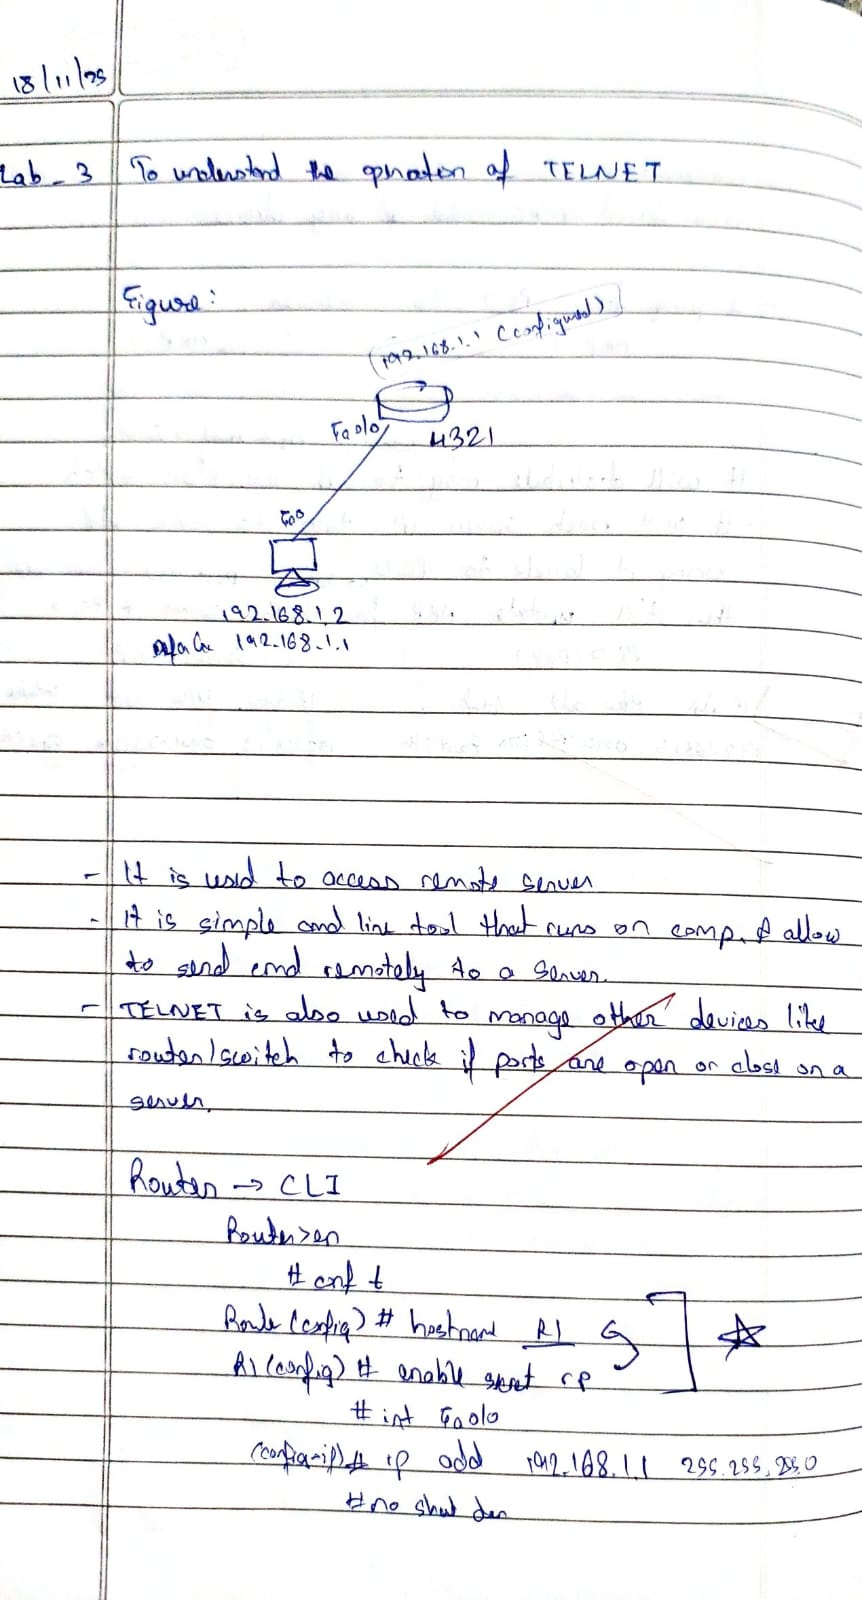 18/11/25
Lab - 3 To understand the operation of TELNET
Figure:
(192.168.1.1 (configured)
Fa0/0
4321
Fa0
192.168.1.2
192.168.1.1
- It is used to access remote server
- It is simple cmd line tool that runs on comp. & allow
to send cmd remotely to a server.
- TELNET is also used to manage other devices like
router/switch to check if ports are open or close on a
server.
Router → CLI
Router>en
# cnf t
Route (config) # hostname R1
R1 (config) # enable secret rp
# int Fa0/0
(config-if) # ip add 192.168.1.1 255.255.255.0
# no shut